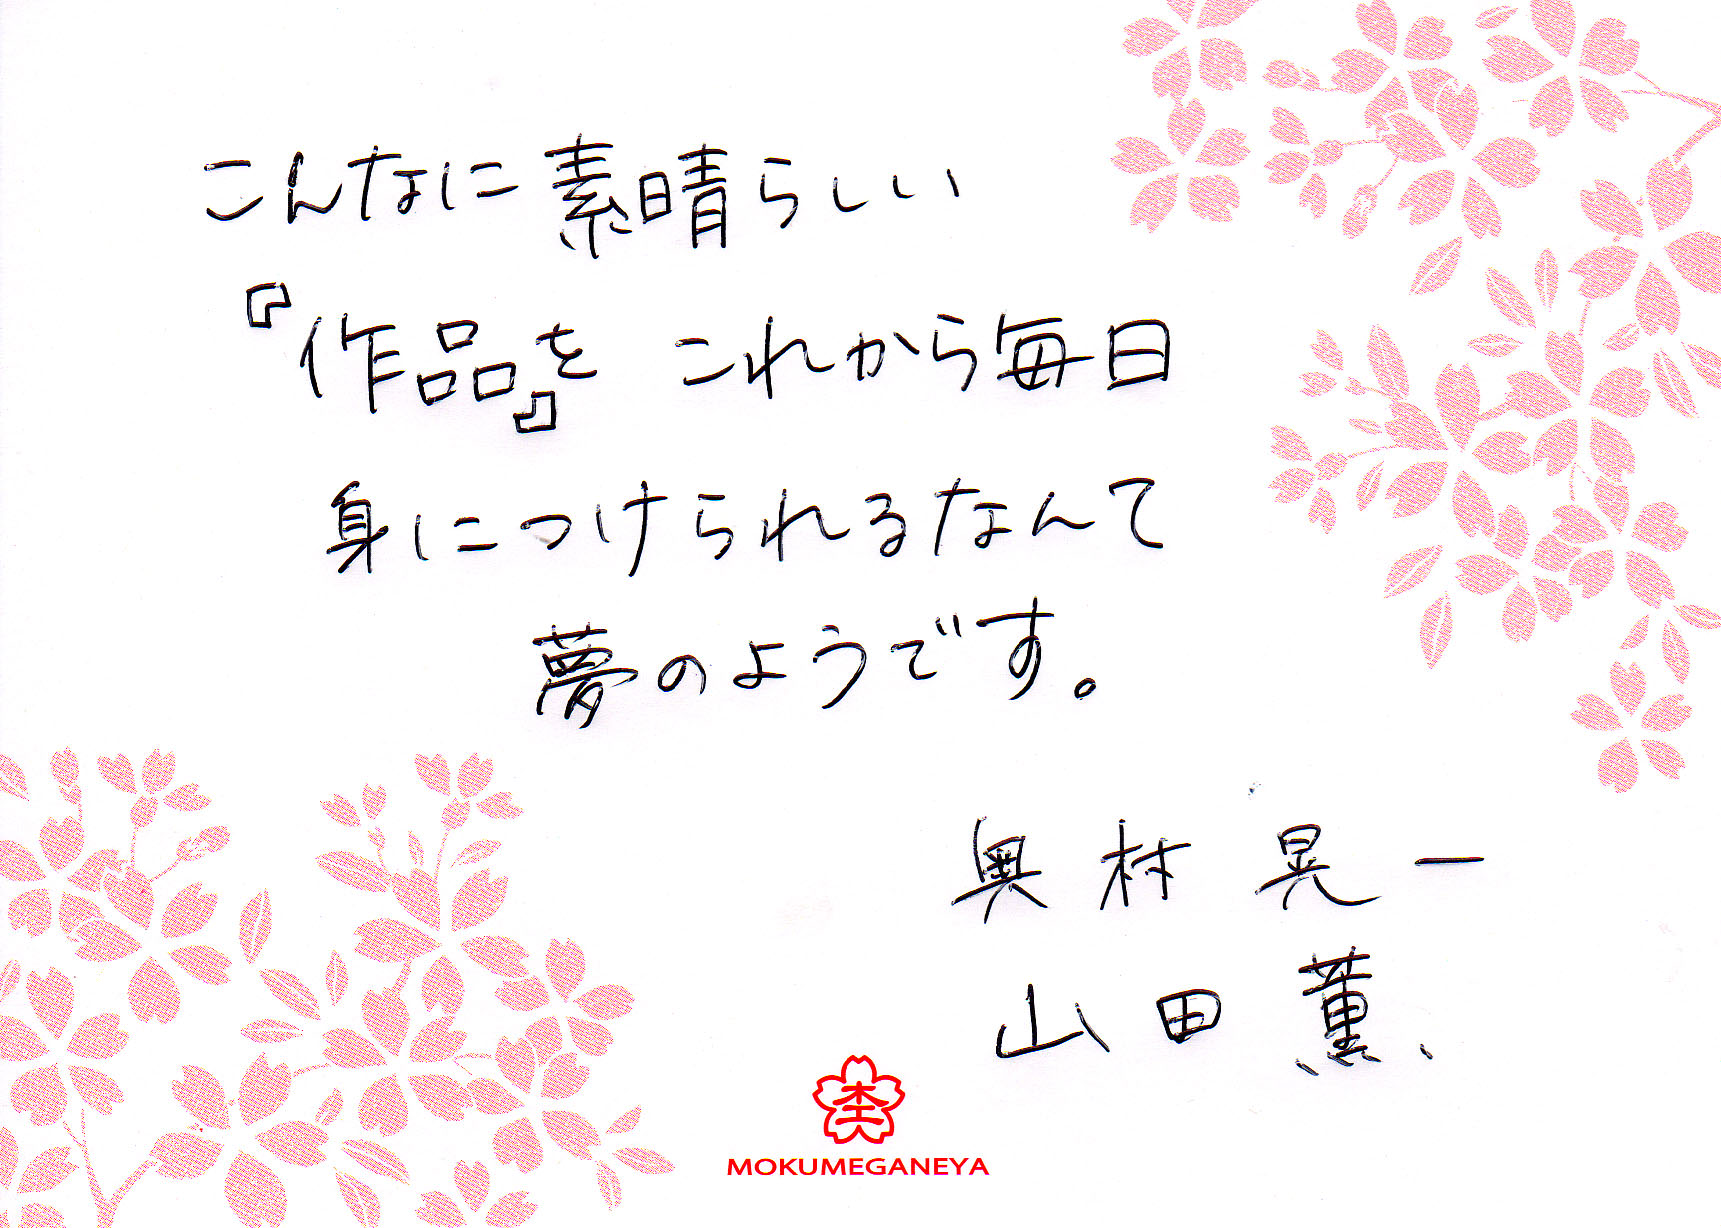 こんなに素晴らしい
『作品』を これから毎日
身につけられるなんて
夢のようです。
奥村晃一
山田薫
MOKUMEGANEYA